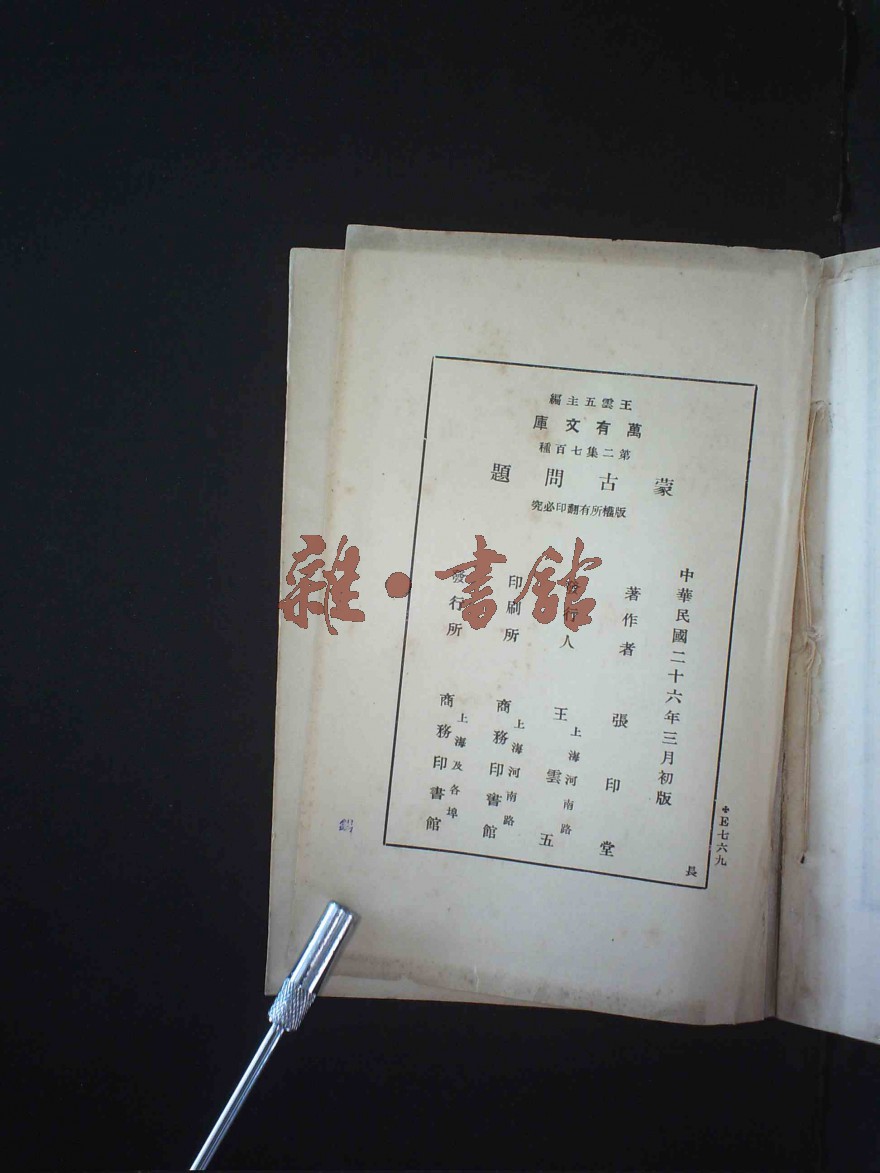 王雲五主編
萬有文庫
第二集七百種
蒙古問題
版權所有翻印必究
中華民國二十六年三月初版
著作者 張印堂
發行人 王雲五
上海河南路
印刷所 商務印書館
上海河南路
發行所 商務印書館
上海及各埠
E七六九
長
雜·書館